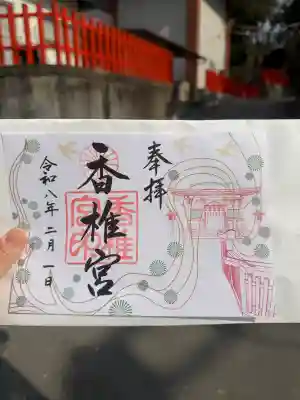 奉拝
香椎宮
香椎宮印
令和八年二月一日